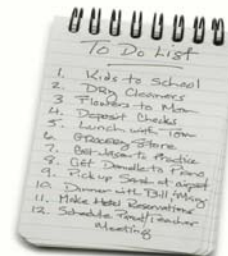 To Do List
1. Kids to School
2. Dry Cleaners
3. Flowers to Mom
4. Deposit Checks
5. Lunch with Tom
6. Grocery Store
7. Get Jason to Practice
8. Get Danielle to Piano
9. Pick up Sarah at airport
10. Dinner with Bill/Missy
11. Make Hotel Reservations
12. Schedule Parent/Teacher
Meeting